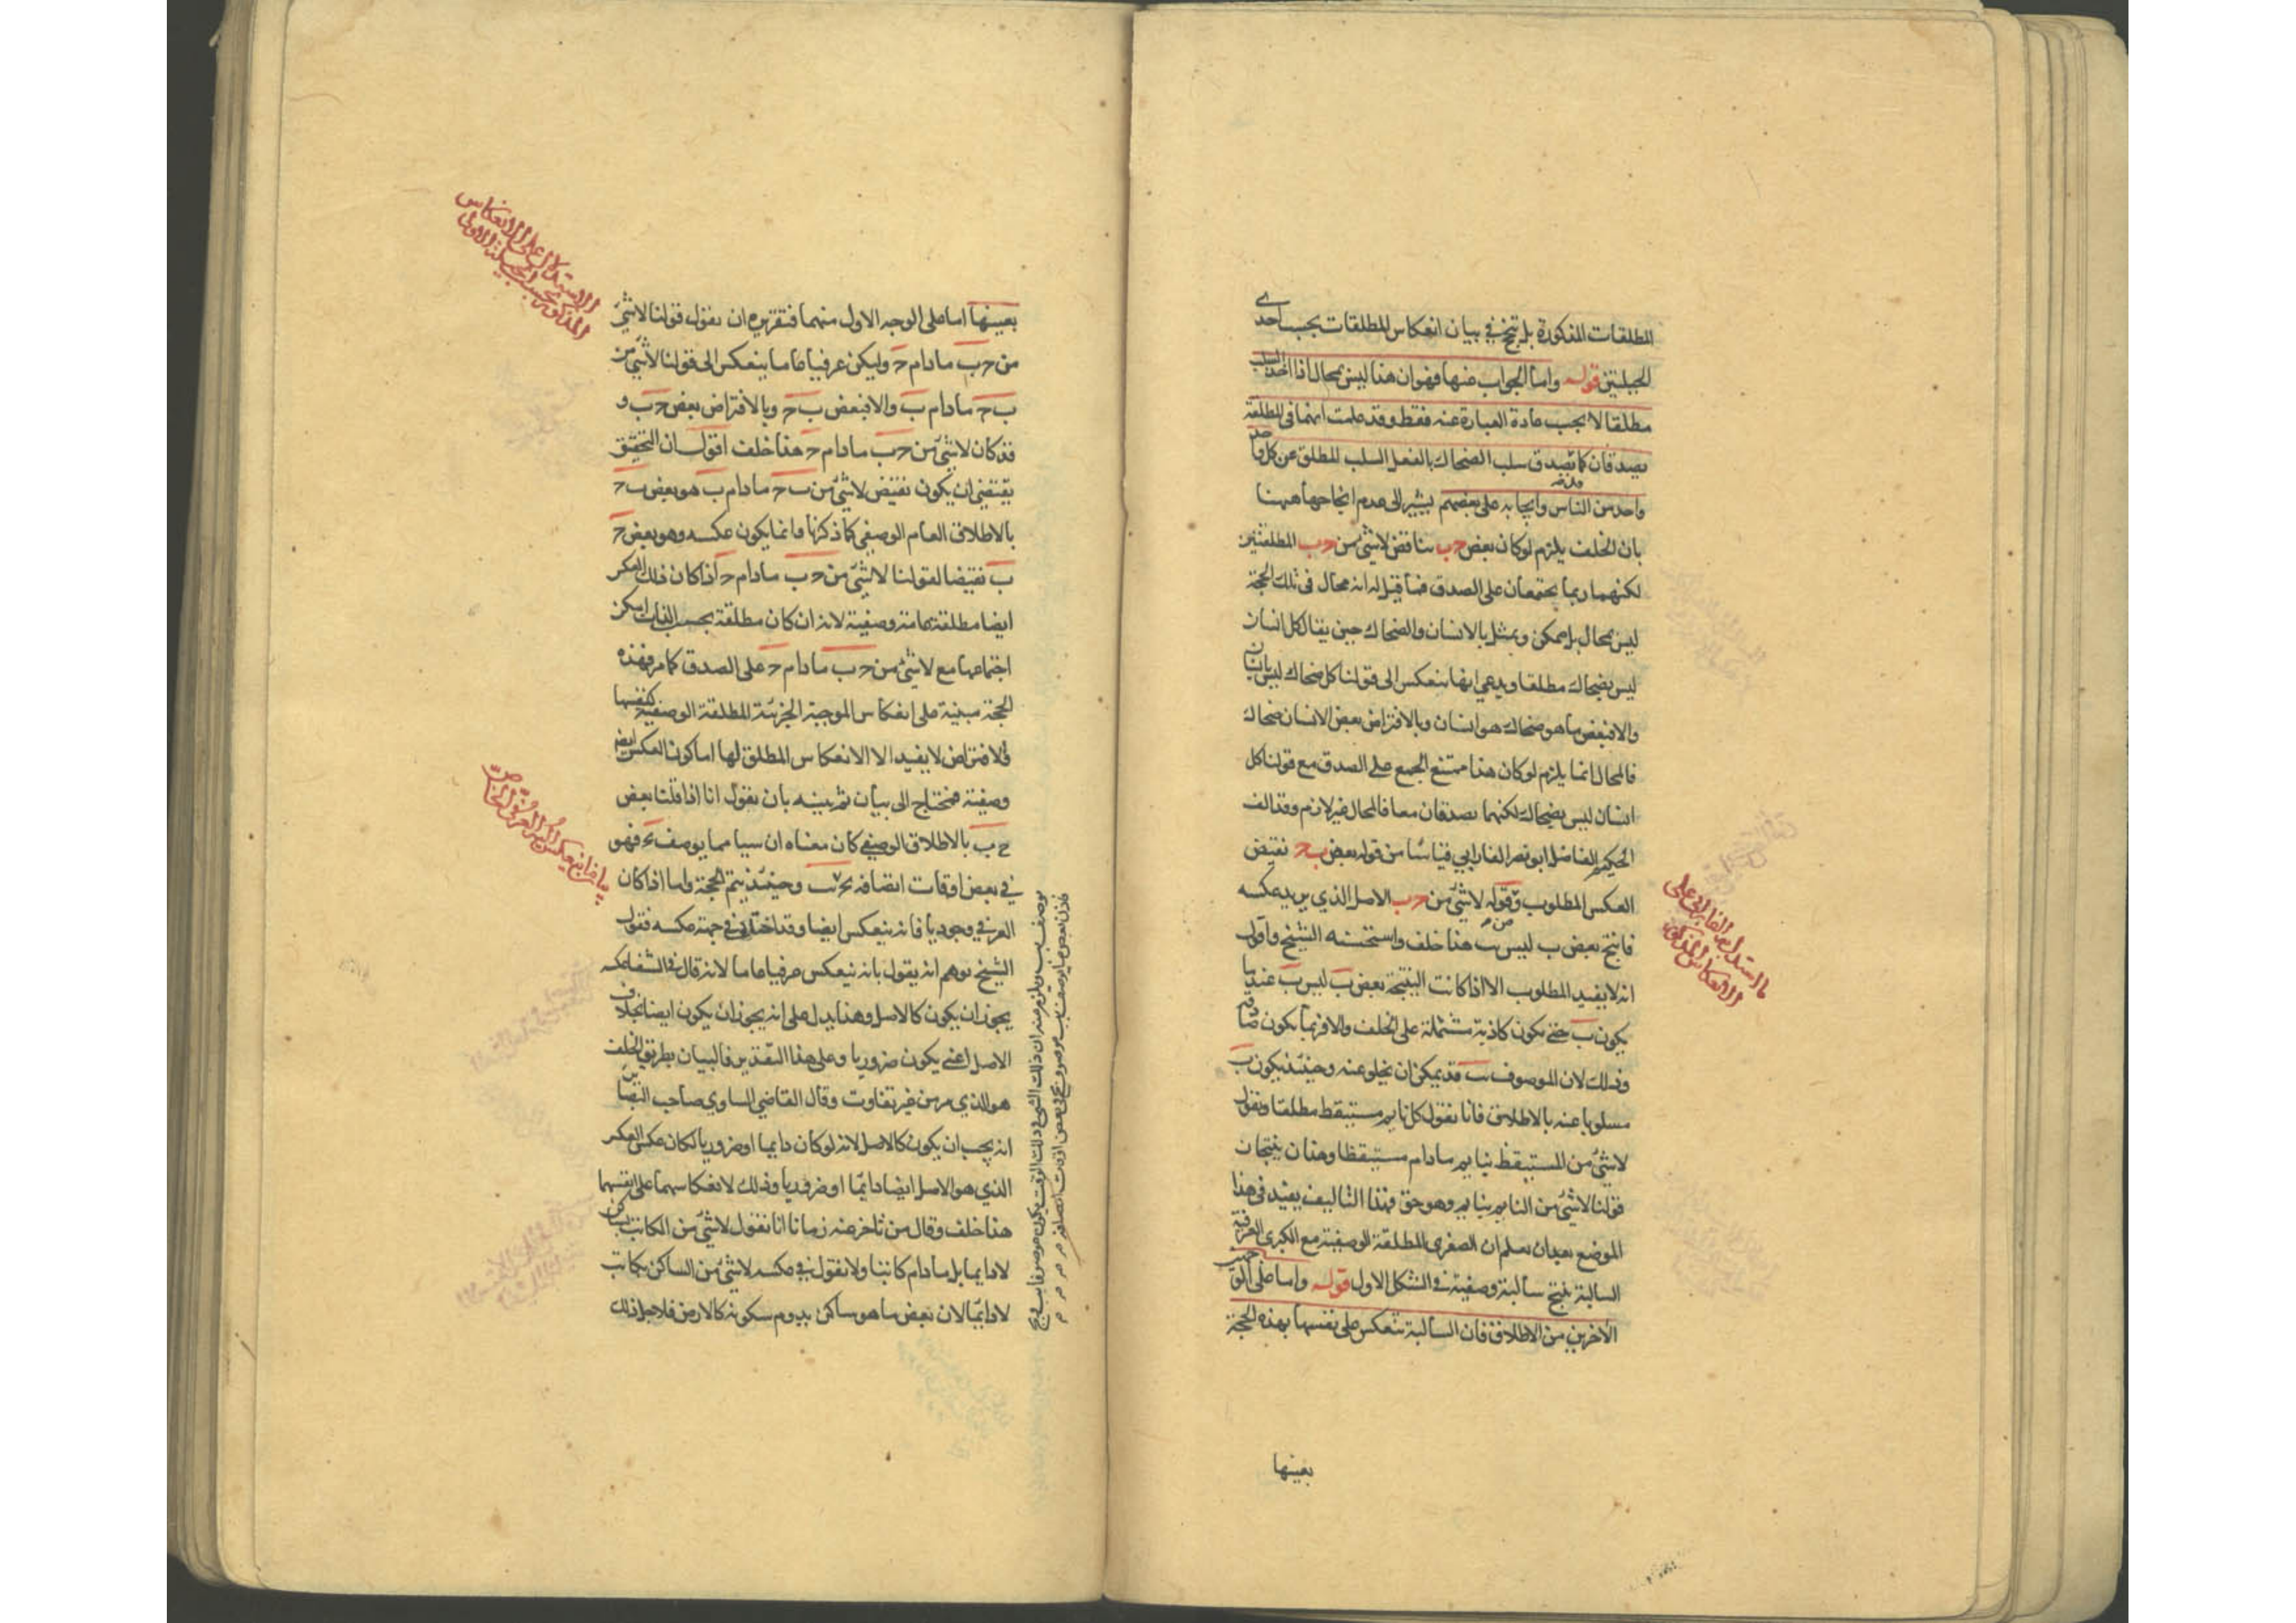 المطلقات المذكورة بل تنتج في بيان انعكاس المطلقات بحسب احدى
الحيلتين قوله واما الجواب عنها فهو ان هذا ليس بمحال اذا اخذ السلب
مطلقا لا بحسب عادة العبارة عنه فقط وقد علمت انهما في المطلقة
يصدقان كما يصدق سلب الضحاك بالفعل السلب المطلق عن كل واحد
واحد من الناس وايجابه على بعضهم يشير الى عدم انتاجها ههنا
بان الخلف يلزم لو كان بعض ح ب يناقض لا شئ من ح ب المطلقتين
لكنهما ربما يجتمعان على الصدق فما قيل له انه محال في تلك الحجة
ليس بمحال بل ممكن ويمثل بالانسان والضحاك حين يقال كل انسان
ليس بضحاك مطلقا ويدعي انها ينعكس الى قولنا كل ضحاك ليس بانسان
والا فبعض ما هو ضحاك هو انسان وبالافتراض بعض الانسان ضحاك
فالمحال انما يلزم لو كان هذا ممتنع الجمع على الصدق مع قولنا كل
انسان ليس بضحاك لكنهما يصدقان معا فالمحال غير لازم وقد الف
الحكيم الفاضل ابو نصر الفارابي قياسا من قوله بعض ب ح نقيض
العكس المطلوب وقوله لا شئ من ح ب الاصل الذي يريد عكسه
فانتج بعض ب ليس ب هذا خلف واستحسنه الشيخ واقول
انه لا يفيد المطلوب الا اذا كانت النتيجة بعض ب ليس ب عندما
يكون ب حتى يكون كاذبة مشتملة على الخلف والا فربما يكون صادقة
وذلك لان الموصوف ب قد يمكن ان يخلو عنه وحينئذ يكون ب
مسلوبا عنه بالاطلاق فانا نقول كل نايم مستيقظ مطلقا ونقول
لا شئ من المستيقظ بنايم مادام مستيقظا وهذان ينتجان
قولنا لا شئ من النايم بنايم وهو حق فهذا التاليف يفيد في هذا
الموضع بعد ان نعلم ان الصغرى المطلقة الوصفية مع الكبرى العرفية
السالبة ينتج سالبة وصفية في الشكل الاول قوله واما على الوجهين
الآخرين من الاطلاق فان السالبة تنعكس على نفسها بهذه الحجة
بعينها
ما استدل به الفارابي على
الانعكاس المذكور
بعينها اما على الوجه الاول منهما فتقريره ان نقول قولنا لا شئ
من ح ب مادام ح وليكن عرفيا عاما ينعكس الى قولنا لا شئ من
ب ح مادام ب والا فبعض ب ح وبالافتراض بعض ح ب و
قد كان لا شئ من ح ب مادام ح هذا خلف اقول ان التحقيق
يقتضي ان يكون نقيض لا شئ من ب ح مادام ب هو بعض ب ح
بالاطلاق العام الوصفي كما ذكرنا وانما يكون عكسه وهو بعض ح
ب نقيضا لقولنا لا شئ من ح ب مادام ح اذا كان ذلك العكس
ايضا مطلقة عامة وصفية لانه ان كان مطلقة بحسب الذات امكن
اجتماعها مع لا شئ من ح ب مادام ح على الصدق كما مر فهذه
الحجة مبنية على انعكاس الموجبة الجزئية المطلقة الوصفية كنفسها
والافتراض لا يفيد الا الانعكاس المطلق لها اما كون العكس ايضا
وصفية فمحتاج الى بيان ثم نبينه بان نقول انا اذا قلنا بعض
ح ب بالاطلاق الوصفي كان معناه ان شيئا مما يوصف ب‍ح فهو
في بعض اوقات اتصافه ب‍ح ب وحينئذ يتم الحجة واما اذا كان
العرفي وجوديا فانه ينعكس ايضا وقد اختلف في جهة عكسه فقول
الشيخ يوهم انه يقول بانه ينعكس عرفيا عاما لانه قال في الشفا عكسه
يجوز ان يكون كالاصل وهذا يدل على انه يجوز ان يكون ايضا بخلاف
الاصل اعني يكون ضروريا وعلى هذا التقدير فالبيان بطريق الخلف
هو الذي مر من غير تفاوت وقال القاضي الساوي صاحب البصاير
انه يجب ان يكون كالاصل لانه لو كان دايما او ضروريا لكان عكس العكس
الذي هو الاصل ايضا دايما او ضروريا وذلك لانعكاسهما على انفسهما
هذا خلف وقال من تاخر عنه زمانا انا نقول لا شئ من الكاتب بساكن
لا دايما بل مادام كاتبا ولا نقول في عكسه لا شئ من الساكن بكاتب
لا دايما لان بعض ما هو ساكن يدوم سكونه كالارض فلاجل ذلك
الاستدلال على الانعكاس
المذكور بحسب الحيلة الاولى